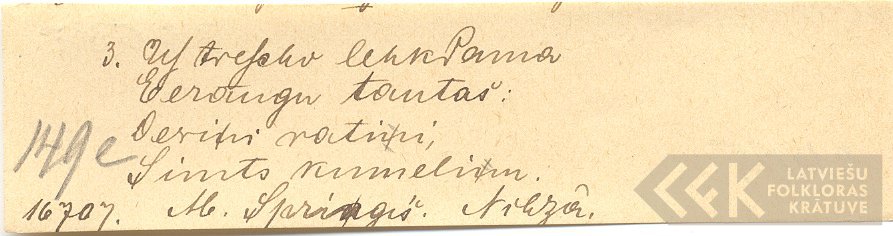 3. Us trescho lehkdama
Eeraugu tautas:
Deviņi ratiņi,
Simts kumeliņu.
149e
16707. M. Spriņgis. Nihzâ.
LATVIEŠU
FOLKLORAS
KRĀTUVE